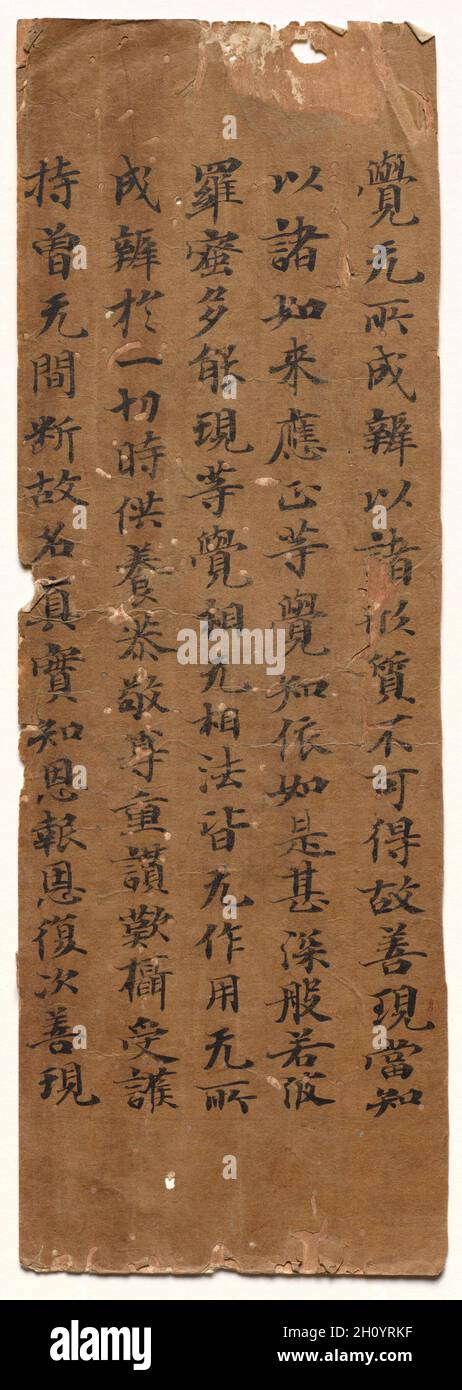 覺无所成辦以諸形質不可得故善現當知
以諸如来應正等覺知依如是甚深般若波
羅蜜多能現等覺相无相法皆无作用无所
成辦於一切時供養恭敬尊重讃歎攝受護
持曾无間断故名真實知恩報恩復次善現
alamy
Image ID: 2H0YRKF
www.alamy.com